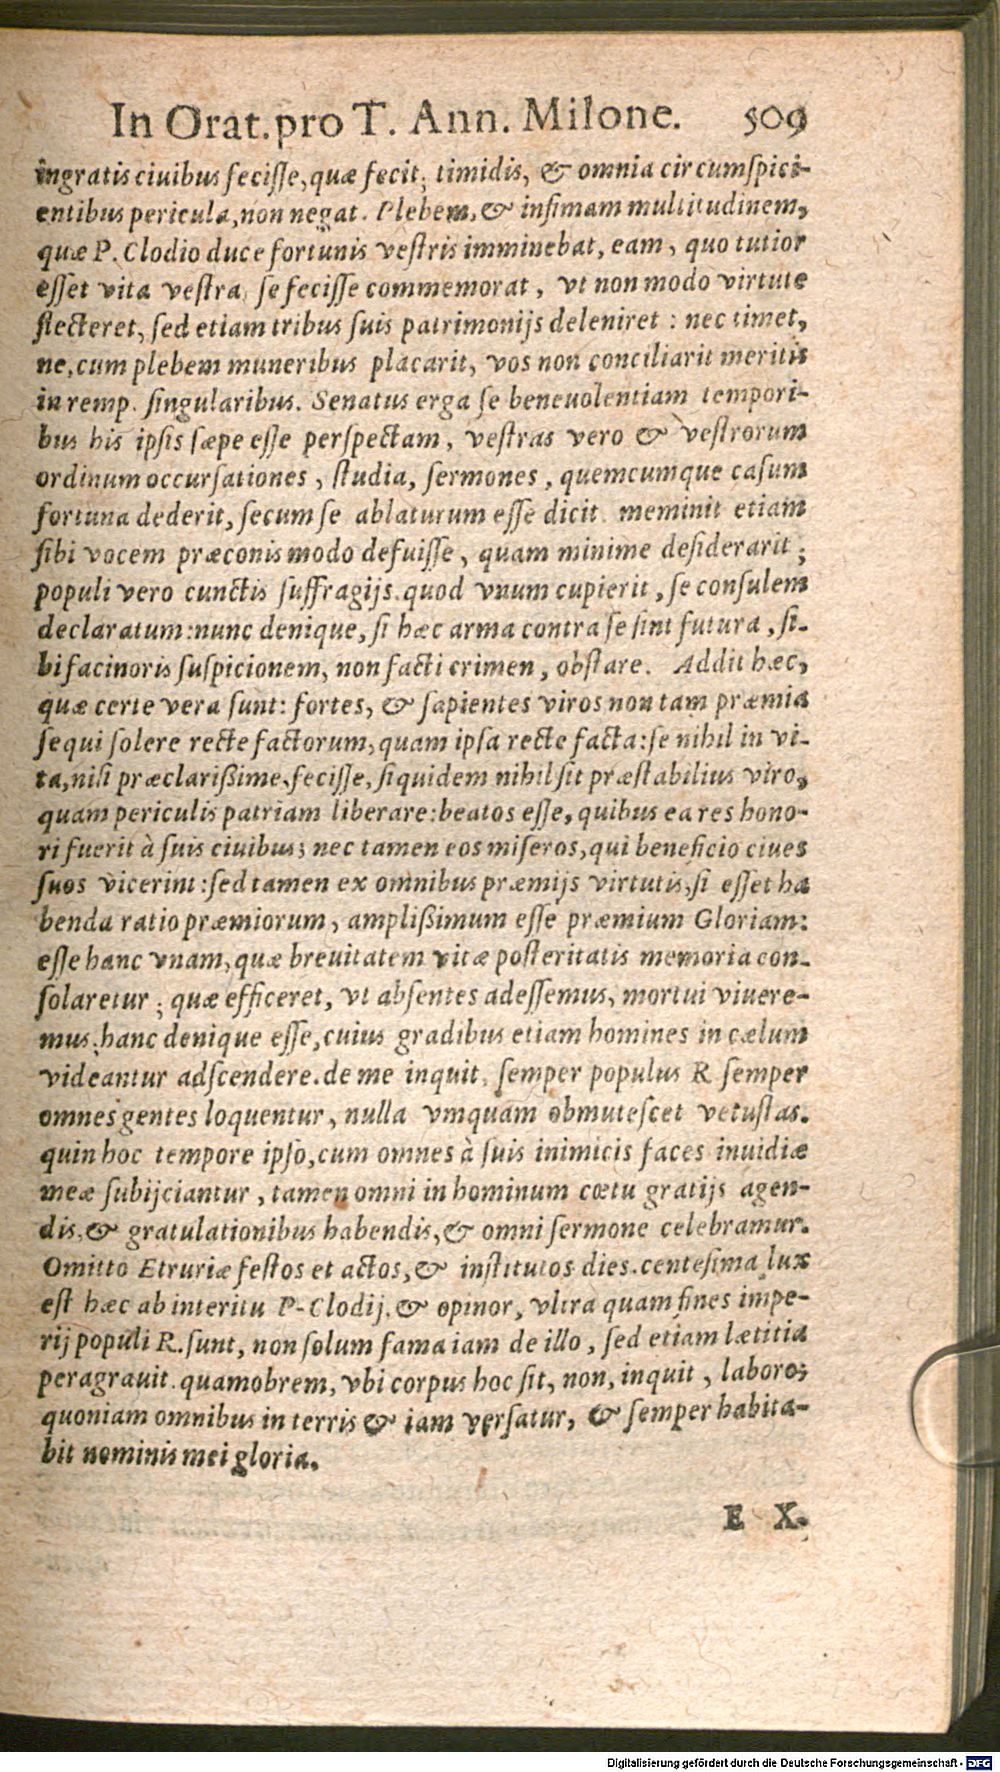 In Orat. pro T. Ann. Milone. 509
ingratis ciuibus feciſſe, quæ fecit; timidis, & omnia circumſpici-
entibus pericula, non negat. Plebem, & infimam multitudinem,
quæ P. Clodio duce fortunis veſtris imminebat, eam, quo tutior
eſſet vita veſtra, ſe feciſſe commemorat, vt non modo virtute
flecteret, ſed etiam tribus ſuis patrimonijs deleniret : nec timet,
ne, cum plebem muneribus placarit, vos non conciliarit meritis
in remp. ſingularibus. Senatus erga ſe beneuolentiam tempori-
bus his ipſis ſæpe eſſe perſpectam, veſtras vero & veſtrorum
ordinum occurſationes, ſtudia, ſermones, quemcumque caſum
fortuna dederit, ſecum ſe ablaturum eſſe dicit. meminit etiam
ſibi vocem præconis modo defuiſſe, quam minime deſiderarit;
populi vero cunctis ſuffragijs. quod vnum cupierit, ſe conſulem
declaratum: nunc denique, ſi hæc arma contra ſe ſint futura, ſi-
bi facinoris ſuſpicionem, non facti crimen, obſtare. Addit hæc,
quæ certe vera ſunt: fortes, & ſapientes viros non tam præmia
ſequi ſolere recte factorum, quam ipſa recte facta: ſe nihil in vi-
ta, niſi præclariſſime, feciſſe, ſiquidem nihil ſit præſtabilius viro,
quam periculis patriam liberare: beatos eſſe, quibus ea res hono-
ri fuerit à ſuis ciuibus; nec tamen eos miſeros, qui beneficio ciues
ſuos vicerint: ſed tamen ex omnibus præmijs virtutis, ſi eſſet ha
benda ratio præmiorum, ampliſſimum eſſe præmium Gloriam:
eſſe hanc vnam, quæ breuitatem vitæ poſteritatis memoria con-
ſolaretur; quæ efficeret, vt abſentes adeſſemus, mortui viuere-
mus; hanc denique eſſe, cuius gradibus etiam homines in cælum
videantur adſcendere. de me inquit, ſemper populus R. ſemper
omnes gentes loquentur, nulla vmquam obmuteſcet vetuſtas.
quin hoc tempore ipſo, cum omnes à ſuis inimicis faces inuidiæ
meæ ſubijciantur, tamen omni in hominum cœtu gratijs agen-
dis, & gratulationibus habendis, & omni ſermone celebramur.
Omitto Etruriæ feſtos et actos, & inſtitutos dies. centeſima lux
eſt hæc ab interitu P. Clodij. & opinor, vltra quam fines impe-
rij populi R. ſunt, non ſolum fama iam de illo, ſed etiam lætitia
peragrauit. quamobrem, vbi corpus hoc ſit, non, inquit, laboro;
quoniam omnibus in terris & iam verſatur, & ſemper habita-
bit nominis mei gloria.
E X.
Digitalisierung gefördert durch die Deutsche Forschungsgemeinschaft - DFG